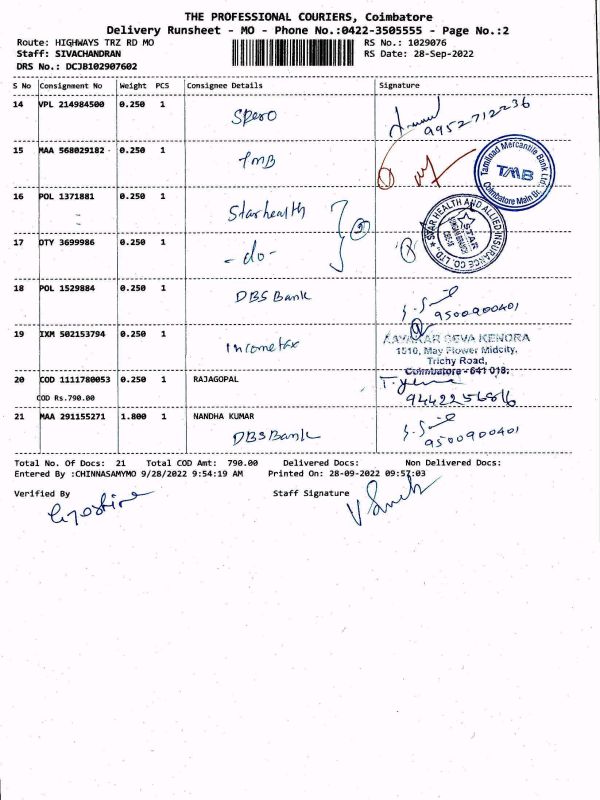 THE PROFESSIONAL COURIERS, Coimbatore
Delivery Runsheet - MO - Phone No.:0422-3505555 - Page No.:2
Route: HIGHWAYS TRZ RD MO RS No.: 1029076
Staff: SIVACHANDRAN RS Date: 28-Sep-2022
DRS No.: DCJB102907602
S No Consignment No Weight PCS Consignee Details Signature
14 VPL 214984500 0.250 1 Spero 9952712236
15 MAA 568029182 0.250 1 TMB Tamilnad Mercantile Bank Ltd. TMB Coimbatore Main Br.
16 POL 1371881 0.250 1 Starhealth STAR HEALTH AND ALLIED INSURANCE CO. LTD. STAR
17 DTY 3699986 0.250 1 -do-
18 POL 1529884 0.250 1 DBS Bank 9500900401
19 IXM 502153794 0.250 1 Incometax AAYAKAR SEVA KENDRA
1510, May Flower Midcity,
Trichy Road,
Coimbatore - 641 018.
20 COD 1111780053 0.250 1 RAJAGOPAL
COD Rs.790.00 9442256816
21 MAA 291155271 1.800 1 NANDHA KUMAR
DBS Bank 9500900401
Total No. Of Docs: 21 Total COD Amt: 790.00 Delivered Docs: Non Delivered Docs:
Entered By :CHINNASAMYMO 9/28/2022 9:54:19 AM Printed On: 28-09-2022 09:57:03
Verified By Staff Signature